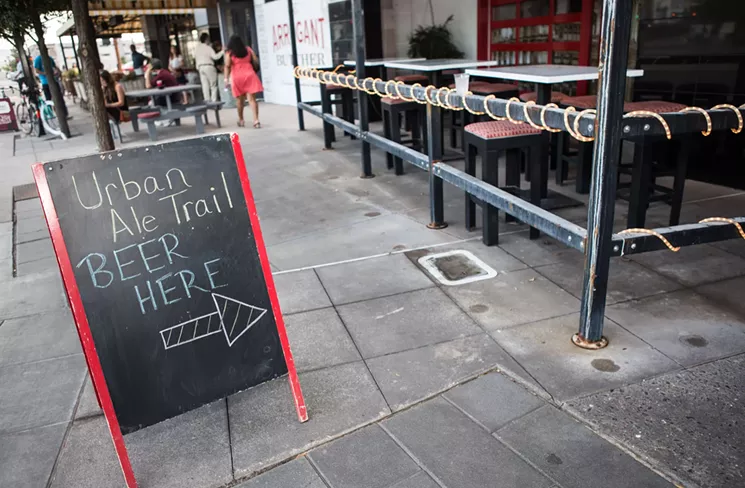 Urban
Ale Trail
BEER
HERE
ARROGANT
BUTCHER